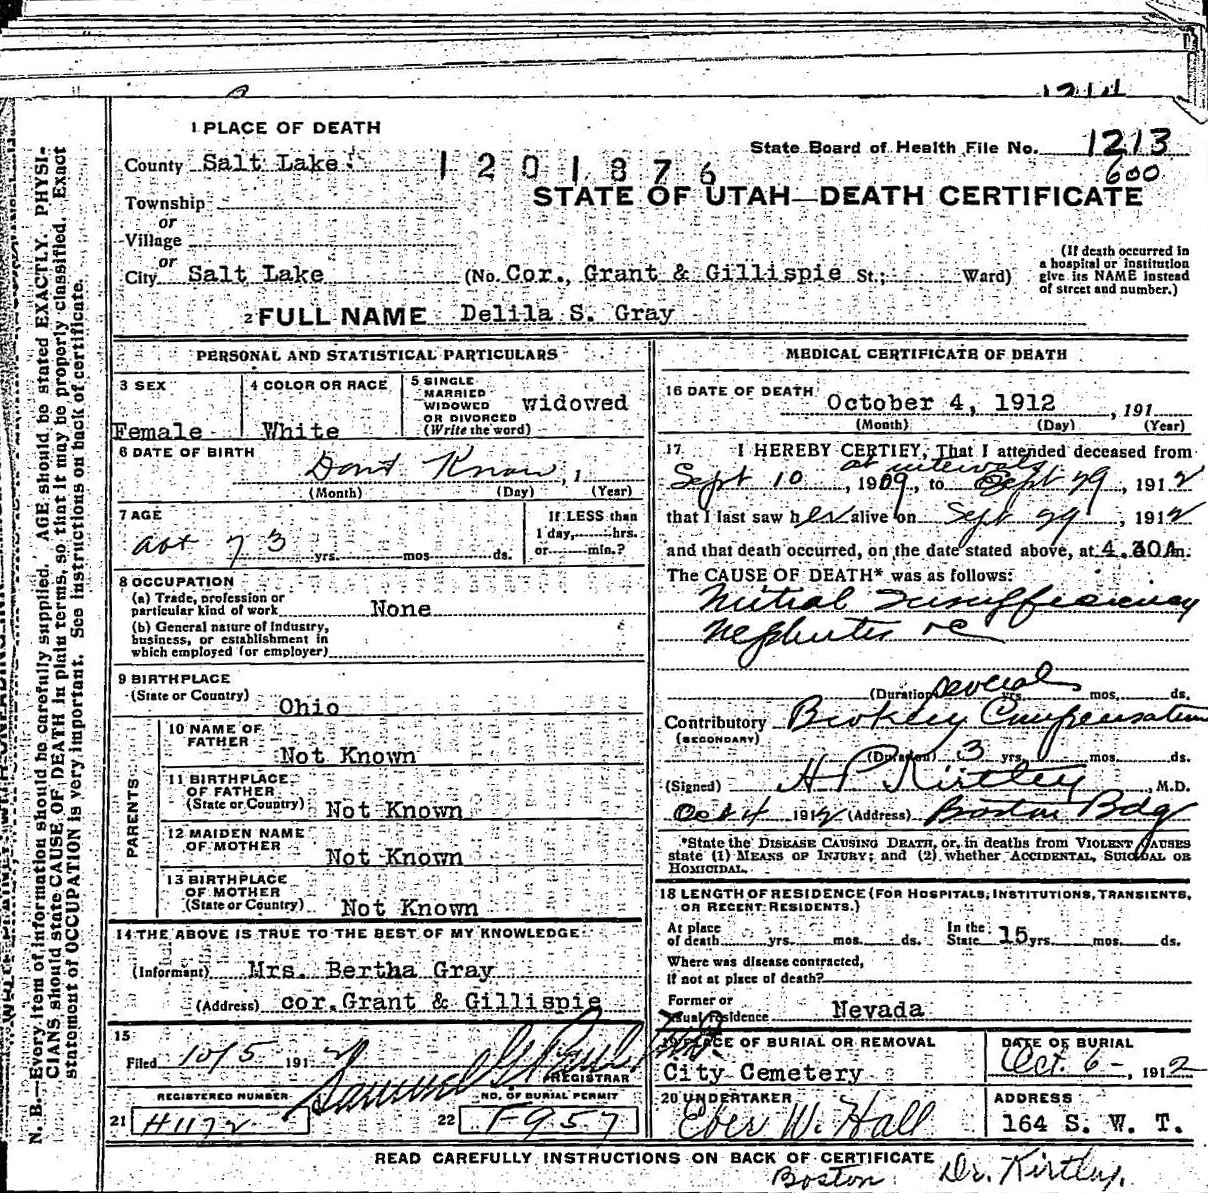 1 PLACE OF DEATH
State Board of Health File No. 1213
County Salt Lake
1201876
600
STATE OF UTAH—DEATH CERTIFICATE
Township
or
Village
or
City Salt Lake (No. Cor., Grant & Gillispie St.; Ward)
(If death occurred in
a hospital or institution
give its NAME instead
of street and number.)
2 FULL NAME Delila S. Gray
PERSONAL AND STATISTICAL PARTICULARS
3 SEX
Female
4 COLOR OR RACE
White
5 SINGLE
MARRIED
WIDOWED
OR DIVORCED
(Write the word)
widowed
6 DATE OF BIRTH
Dont Know, 1
(Month) (Day) (Year)
7 AGE
abt 73 yrs. mos. ds.
If LESS than
1 day, hrs.
or min.?
8 OCCUPATION
(a) Trade, profession or
particular kind of work None
(b) General nature of industry,
business, or establishment in
which employed (or employer)
9 BIRTHPLACE
(State or Country) Ohio
PARENTS
10 NAME OF
FATHER Not Known
11 BIRTHPLACE
OF FATHER
(State or Country) Not Known
12 MAIDEN NAME
OF MOTHER Not Known
13 BIRTHPLACE
OF MOTHER
(State or Country) Not Known
14 THE ABOVE IS TRUE TO THE BEST OF MY KNOWLEDGE
(Informant) Mrs. Bertha Gray
(Address) cor. Grant & Gillispie
15
Filed 10/5 1912
REGISTRAR
REGISTERED NUMBER
21 H1172
NO. OF BURIAL PERMIT
22 F957
MEDICAL CERTIFICATE OF DEATH
16 DATE OF DEATH
October 4, 1912, 191
(Month) (Day) (Year)
17 I HEREBY CERTIFY, That I attended deceased from
at intervals
Sept 10, 1909, to Sept 29, 1912
that I last saw her alive on Sept 29, 1912
and that death occurred, on the date stated above, at 4.30 A m.
The CAUSE OF DEATH* was as follows:
Mitral Insufficiency
Nephritis
(Duration) several yrs. mos. ds.
Contributory Broken Compensation
(SECONDARY)
(Duration) 3 yrs. mos. ds.
(Signed) H P Kirtley, M.D.
Oct 4 1912 (Address) Boston Bdg
*State the DISEASE CAUSING DEATH, or, in deaths from VIOLENT CAUSES
state (1) MEANS OF INJURY; and (2) whether ACCIDENTAL, SUICIDAL OR
HOMICIDAL.
18 LENGTH OF RESIDENCE (FOR HOSPITALS, INSTITUTIONS, TRANSIENTS,
OR RECENT RESIDENTS.)
At place
of death yrs. mos. ds.
In the
State 15 yrs. mos. ds.
Where was disease contracted,
if not at place of death?
Former or
usual residence Nevada
19 PLACE OF BURIAL OR REMOVAL
City Cemetery
DATE OF BURIAL
Oct. 6 -, 1912
20 UNDERTAKER
Eber W. Hall
ADDRESS
164 S. W. T.
READ CAREFULLY INSTRUCTIONS ON BACK OF CERTIFICATE
Boston Dr. Kirtley.
N. B.—Every item of information should be carefully supplied. AGE should be stated EXACTLY. PHYSI-
CIANS should state CAUSE OF DEATH in plain terms, so that it may be properly classified. Exact
statement of OCCUPATION is very important. See instructions on back of certificate.